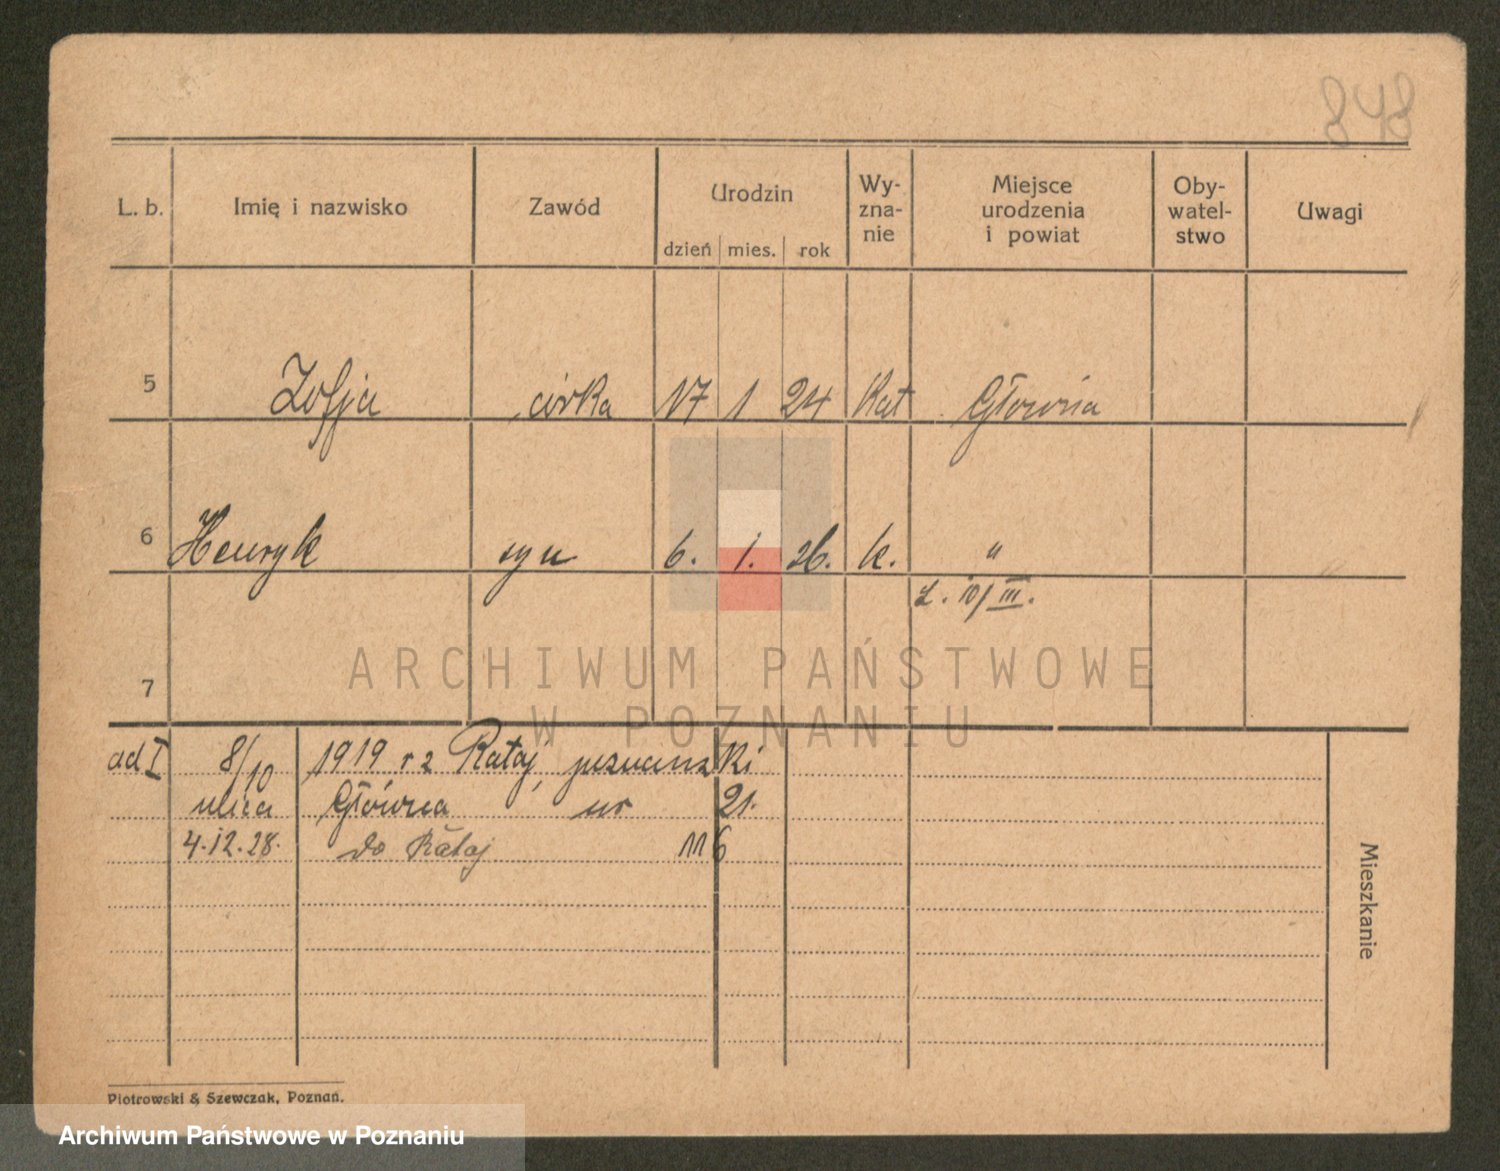 848
L. b. Imię i nazwisko Zawód Urodzin dzień mies. rok Wy-zna-nie Miejsce urodzenia i powiat Oby-watel-stwo Uwagi
5 Zofja córka 17 1 24 Kat Główna
6 Henryk syn 6. 1. 26. k. "
z. 10/III.
7
ARCHIWUM PAŃSTWOWE
W POZNANIU
ad I 8/10 1919 r z Rataj, poznański
ulica Główna nr 21.
4.12.28. do Rataj 116
Mieszkanie
Piotrowski & Szewczak, Poznań.
Archiwum Państwowe w Poznaniu